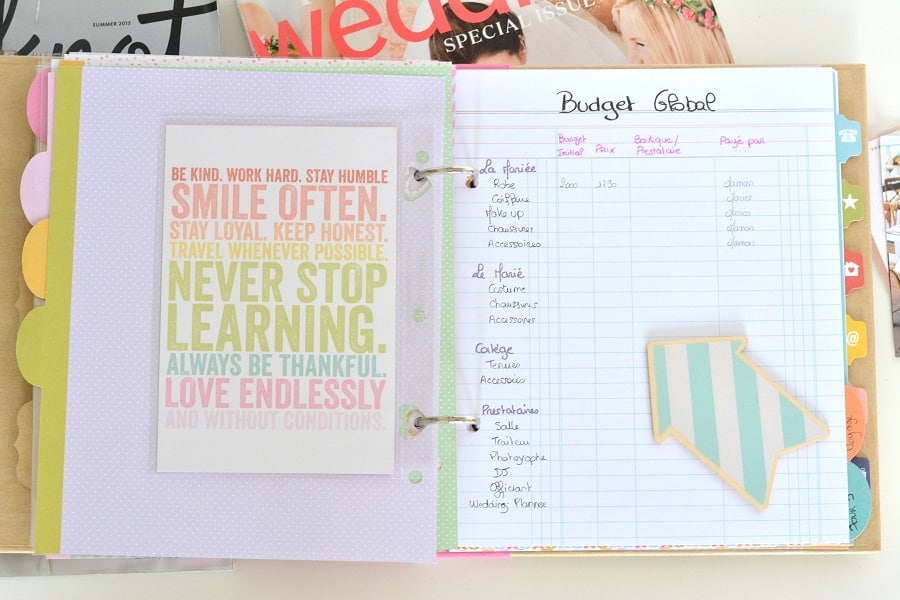 SUMMER 2015
knot
wedding
SPECIAL ISSUE
BE KIND. WORK HARD. STAY HUMBLE
SMILE OFTEN.
STAY LOYAL. KEEP HONEST.
TRAVEL WHENEVER POSSIBLE.
NEVER STOP
LEARNING.
ALWAYS BE THANKFUL.
LOVE ENDLESSLY
AND WITHOUT CONDITIONS.
Budget Global
Budget Initial Prix Boutique/Prestataire Payé par
La Mariée
Robe 2000 1790 Maman
Coiffure
Make up
Chaussures Maman
Accessoires Maman
Le Marié
Costume
Chaussures
Accessoires
Cortège
Tenues
Accessoires
Prestataires
Salle
Traiteur
Photographe
DJ
Officiant
Wedding Planner
@
Voyage
Jour J